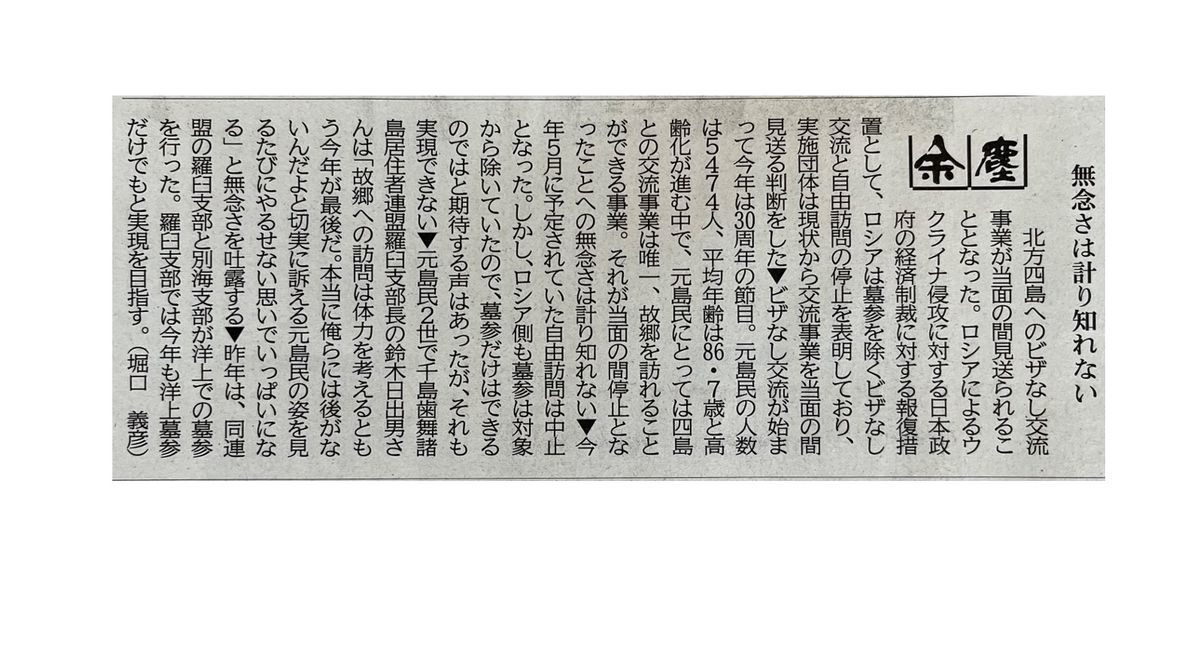 無念さは計り知れない
余塵
北方四島へのビザなし交流
事業が当面の間見送られるこ
ととなった。ロシアによるウ
クライナ侵攻に対する日本政
府の経済制裁に対する報復措
置として、ロシアは墓参を除くビザなし
交流と自由訪問の停止を表明しており、
実施団体は現状から交流事業を当面の間
見送る判断をした▼ビザなし交流が始ま
って今年は30周年の節目。元島民の人数
は5474人、平均年齢は86・7歳と高
齢化が進む中で、元島民にとっては四島
との交流事業は唯一、故郷を訪れること
ができる事業。それが当面の間停止とな
ったことへの無念さは計り知れない▼今
年5月に予定されていた自由訪問は中止
となった。しかし、ロシア側も墓参は対象
から除いていたので、墓参だけはできる
のではと期待する声はあったが、それも
実現できない▼元島民2世で千島歯舞諸
島居住者連盟羅臼支部長の鈴木日出男さ
んは「故郷への訪問は体力を考えるとも
う今年が最後だ。本当に俺らには後がな
いんだよと切実に訴える元島民の姿を見
るたびにやるせない思いでいっぱいにな
る」と無念さを吐露する▼昨年は、同連
盟の羅臼支部と別海支部が洋上での墓参
を行った。羅臼支部では今年も洋上墓参
だけでもと実現を目指す。（堀口　義彦）